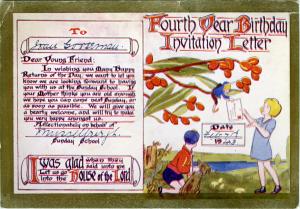 To
Dear Young Friend:
In wishing you Many Happy
Returns of the Day, we want to let you
know we are looking forward to having
you with us at the Sunday School. If
your Mother thinks you are old enough,
we hope you can come next Sunday, or
as soon as possible. We will give you
a hearty welcome, and will try to make
you very happy amongst us.
Affectionately on behalf of
Sunday School
I was glad when they
said unto me
Let us go
into the House of the Lord
Fourth Year Birthday
Invitation Letter
Date
19